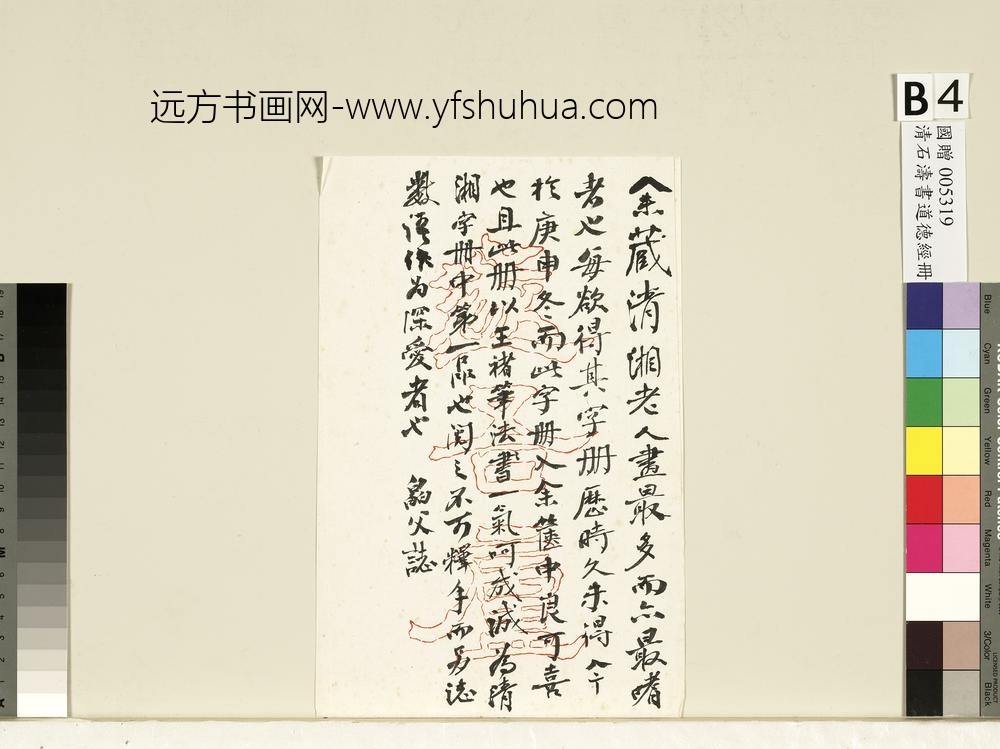 远方书画网-www.yfshuhua.com
B 4
國贈 005319
清石濤書道德經冊
余藏清湘老人畫最多而亦最嗜
者也每欲得其字册歷時久未得今
於庚申冬而此字册入余篋中良可喜
也且此册以王褚筆法書一氣呵成誠為清
湘字册中第一品也閱之不可釋手而另誌
數語作為深愛者也 父誌
Blue
Cyan
Green
Yellow
Red
Magenta
White
3/Color
Black